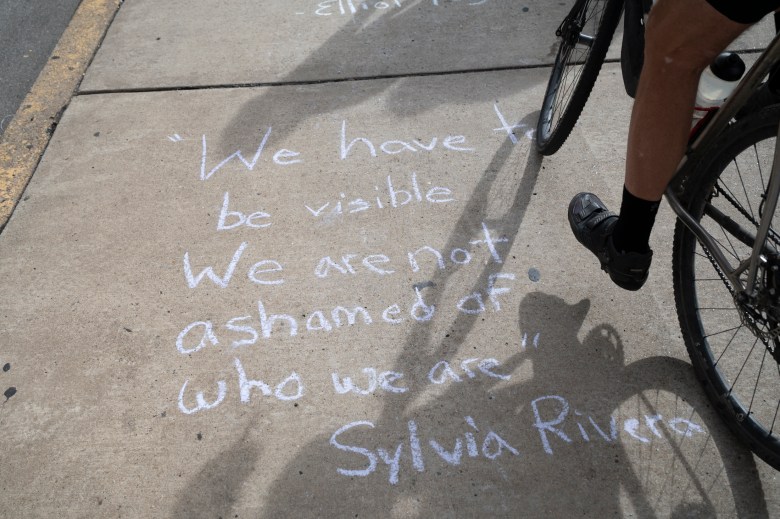 - Elliot
"We have to
be visible
We are not
ashamed of
who we are"
Sylvia Rivera